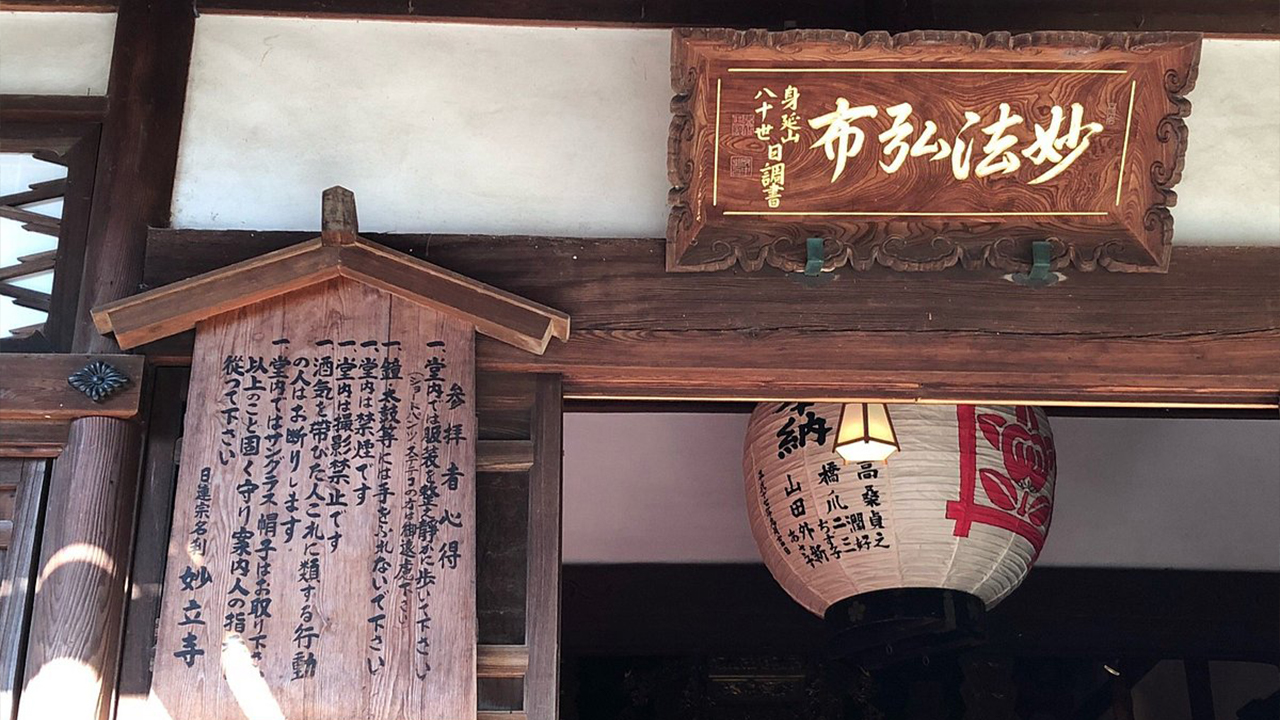 妙法弘布
身延山
八十世 日調書
参拝者心得
一、堂内では服装を整え静かに歩いて下さい
(ショートパンツ ステテコの方は御遠慮下さい)
一、鐘 太鼓等には手をふれないで下さい
一、堂内は禁煙です
一、堂内は撮影禁止です
一、酒気を帯びた人これに類する行動
の人はお断りします
一、堂内ではサングラス 帽子はお取り下さ
以上のこと固く守り案内人の指
従って下さい
日蓮宗名刹 妙立寺
納
高桑貞之
潤好
橋爪二三
ちず子
山田外新